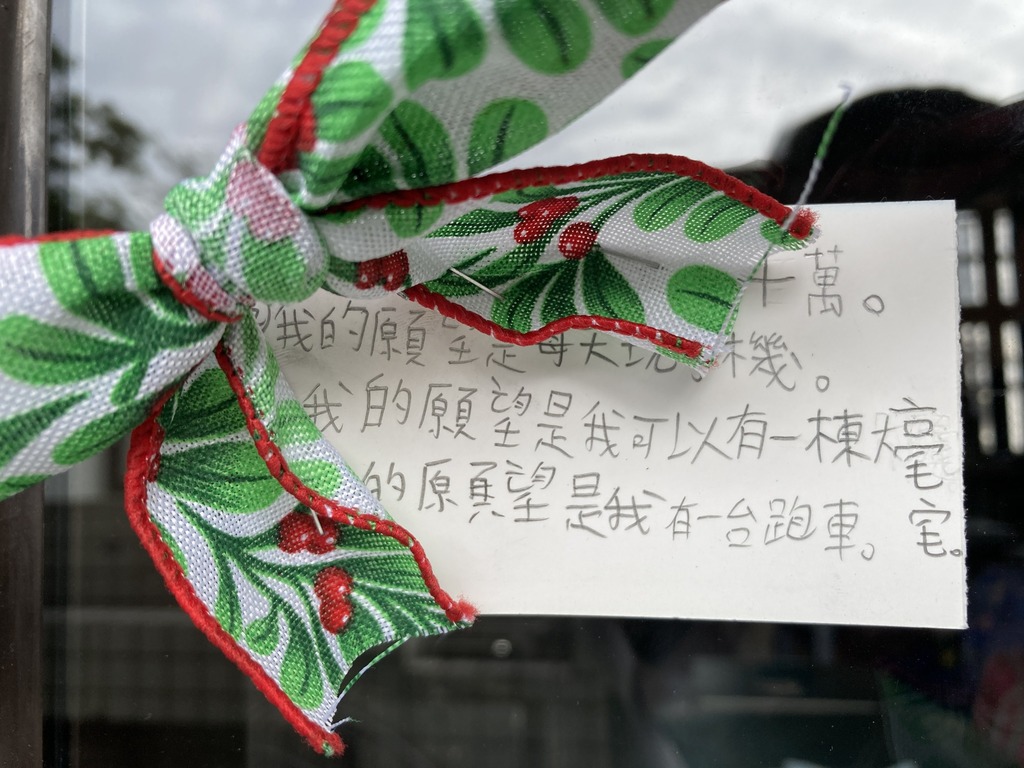 十萬。
我的願望是每天玩 機。
我的願望是我可以有一棟大豪宅。
的原頁望是我有一台跑車。